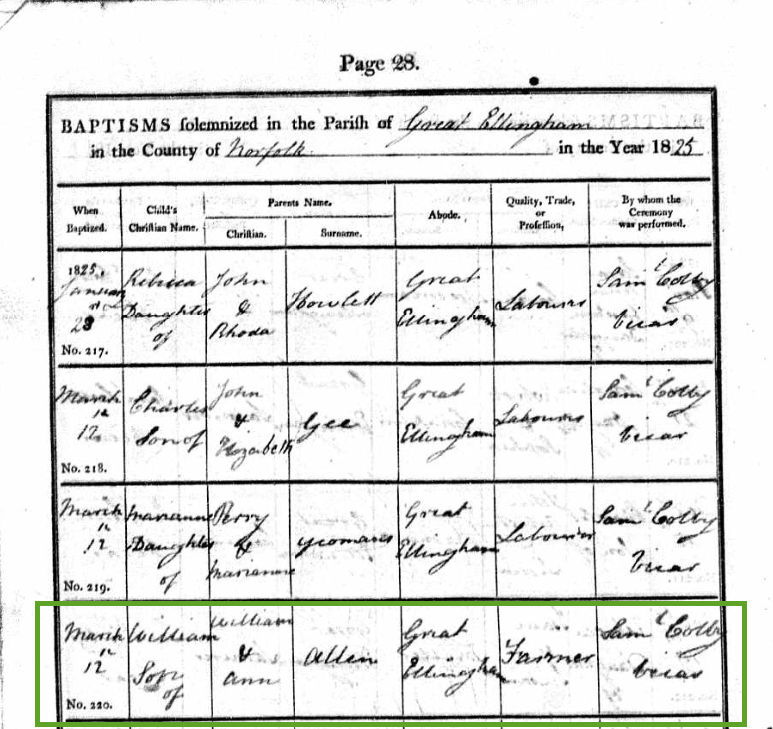 Page 28.
BAPTISMS solemnized in the Parish of Great Ellingham
in the County of Norfolk in the Year 1825
When Baptized.
Child's Christian Name.
Parents Name.
Christian.
Surname.
Abode.
Quality, Trade, or Profession,
By whom the Ceremony was performed.
1825,
January
28
No. 217.
Rebecca
Daughter
of
John
&
Rhoda
Howlett
Great
Ellingham
Labourer
Saml Colby
Vicar
March
12
No. 218.
Charles
Son of
John
&
Elizabeth
Gee
Great
Ellingham
Labourer
Saml Colby
Vicar
March
12
No. 219.
Marianne
Daughter
of
Perry
&
Marianne
Yeomans
Great
Ellingham
Labourer
Saml Colby
Vicar
March
12
No. 220.
William
Son
of
William
&
Ann
Allen
Great
Ellingham
Farmer
Saml Colby
Vicar